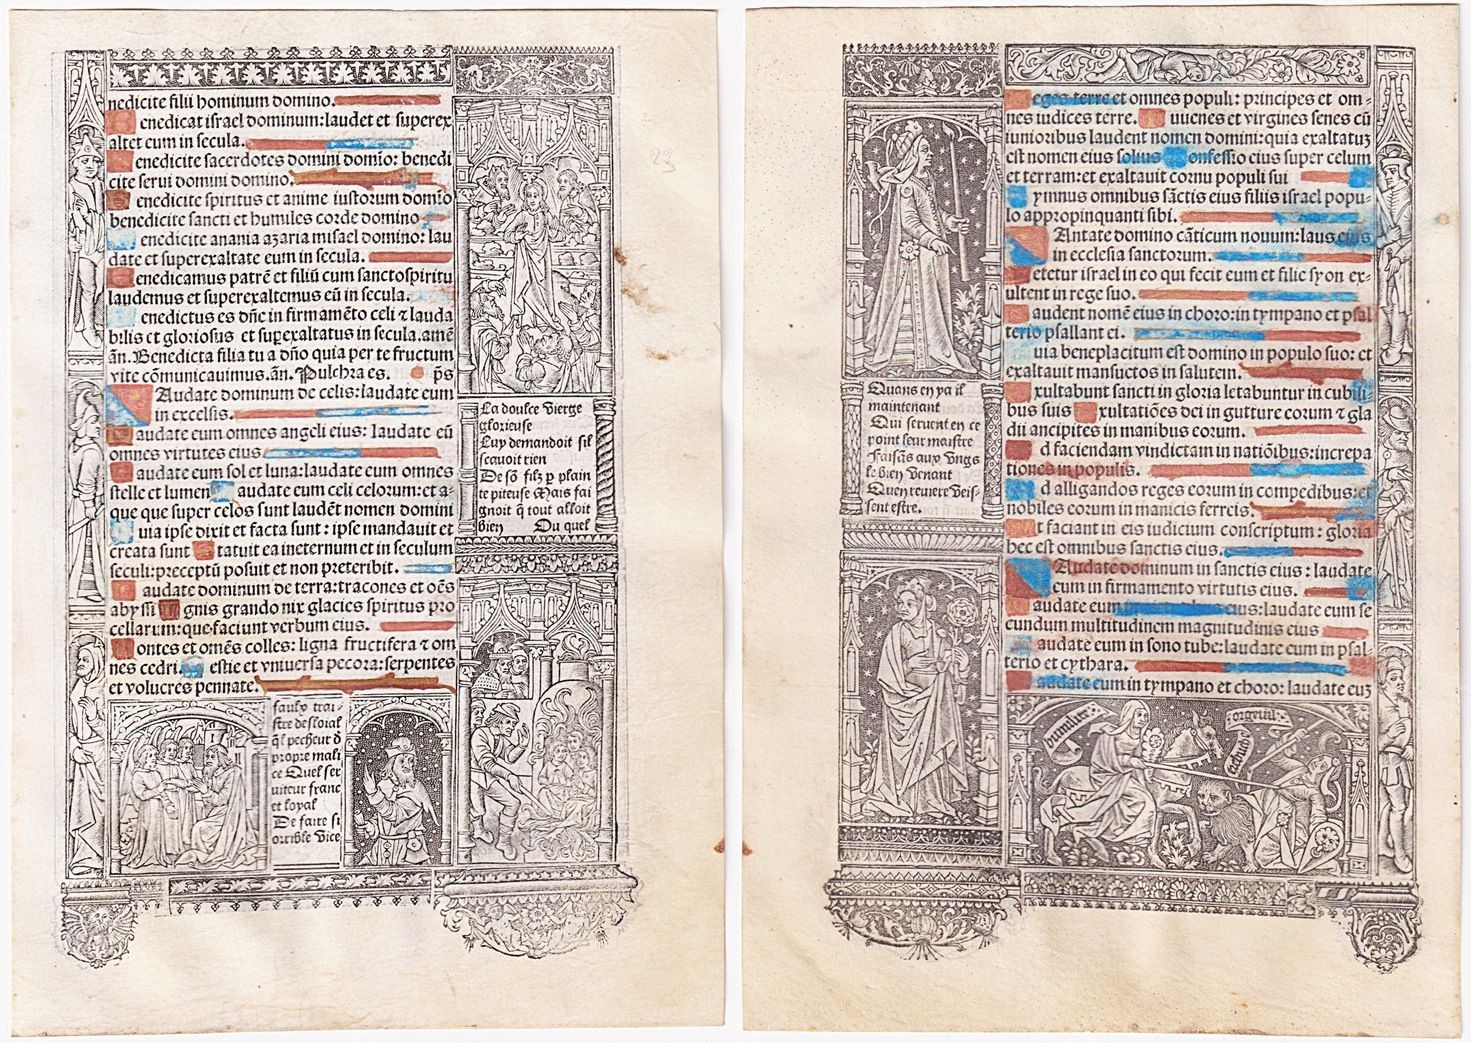 nedicite filii hominum domino.
enedicat israel dominum: laudet et superex
altet eum in secula.
enedicite sacerdotes domini domīo: benedi
cite serui domini domino.
enedicite spiritus et anime iustorum domīo
benedicite sancti et humiles corde domino
enedicite anania azaria misael domino: lau
date et superexaltate eum in secula.
enedicamus patrē et filiū cum sanctospiritu
laudemus et superexaltemus eū in secula.
enedictus es dñe in firmamēto celi ⁊ lauda
bilis et gloriosus et supexaltatus in secula. amē
añ. Benedicta filia tu a dño quia per te fructum
vite cōmunicauimus. añ. Pulchra es. p̄s
Audate dominum de celis: laudate eum
in excelsis.
audate eum omnes angeli eius: laudate eū
omnes virtutes eius
audate eum sol et luna: laudate eum omnes
stelle et lumen audate eum celi celorum: et a-
que que super celos sunt laudēt nomen domini
uia ipse dixit et facta sunt: ipse mandauit et
creata sunt tatuit ea ineternum et in seculum
seculi: preceptū posuit et non preteribit.
audate dominum de terra: tracones et oēs
abyssi gnis grando nix glacies spiritus pro
cellarum: que faciunt verbum eius.
ontes et omēs colles: ligna fructifera ⁊ om
nes cedri. estie et vniuersa pecora: serpentes
et volucres pennate.
La doulce vierge
glorieuse
Luy demandoit sil
scauoit rien
De sō filz p plain
te piteuse Mais fai
gnoit q̄ tout alloit
bien Ou quel
faulx trai-
stre desloial
q̄l pecheut d
propre mali
ce Quel ser
uiteur franc
et loyal
De faire si
orrible vice
eges terre et omnes populi: principes et om-
nes iudices terre. uuenes et virgines senes cū
iunioribus laudent nomen domini: quia exaltatuz
est nomen eius solius onfessio eius super celum
et terram: et exaltauit cornu populi sui
ymnus omnibus sāctis eius filiis israel popu-
lo appropinquanti sibi.
Antate domino cāticum nouum: laus eius
in ecclesia sanctorum.
etetur israel in eo qui fecit eum et filie syon ex-
ultent in rege suo.
audent nomē eius in choro: in tympano et psal
terio psallant ei.
uia beneplacitum est domino in populo suo: et
exaltauit mansuetos in salutem.
xultabunt sancti in gloria letabuntur in cubili-
bus suis xultatiōes dei in gutture eorum ⁊ gla
dii ancipites in manibus eorum.
d faciendam vindictam in natiōibus: increpa
tiones in populis.
d alligandos reges eorum in compedibus: et
nobiles eorum in manicis ferreis.
t faciant in eis iudicium conscriptum: gloria
hec est omnibus sanctis eius.
Audate dominum in sanctis eius: laudate
eum in firmamento virtutis eius.
audate eum eius: laudate eum se
cundum multitudinem magnitudinis eius
audate eum in sono tube: laudate eum in psal
terio et cythara.
audate eum in tympano et choro: laudate euz
Quans en ya il
maintenant
Qui seruent en ce
point leur maistre
Faisās aux yngs
le bien venant
Quen reuiere veis-
sent estre.
humilite
orgeuil